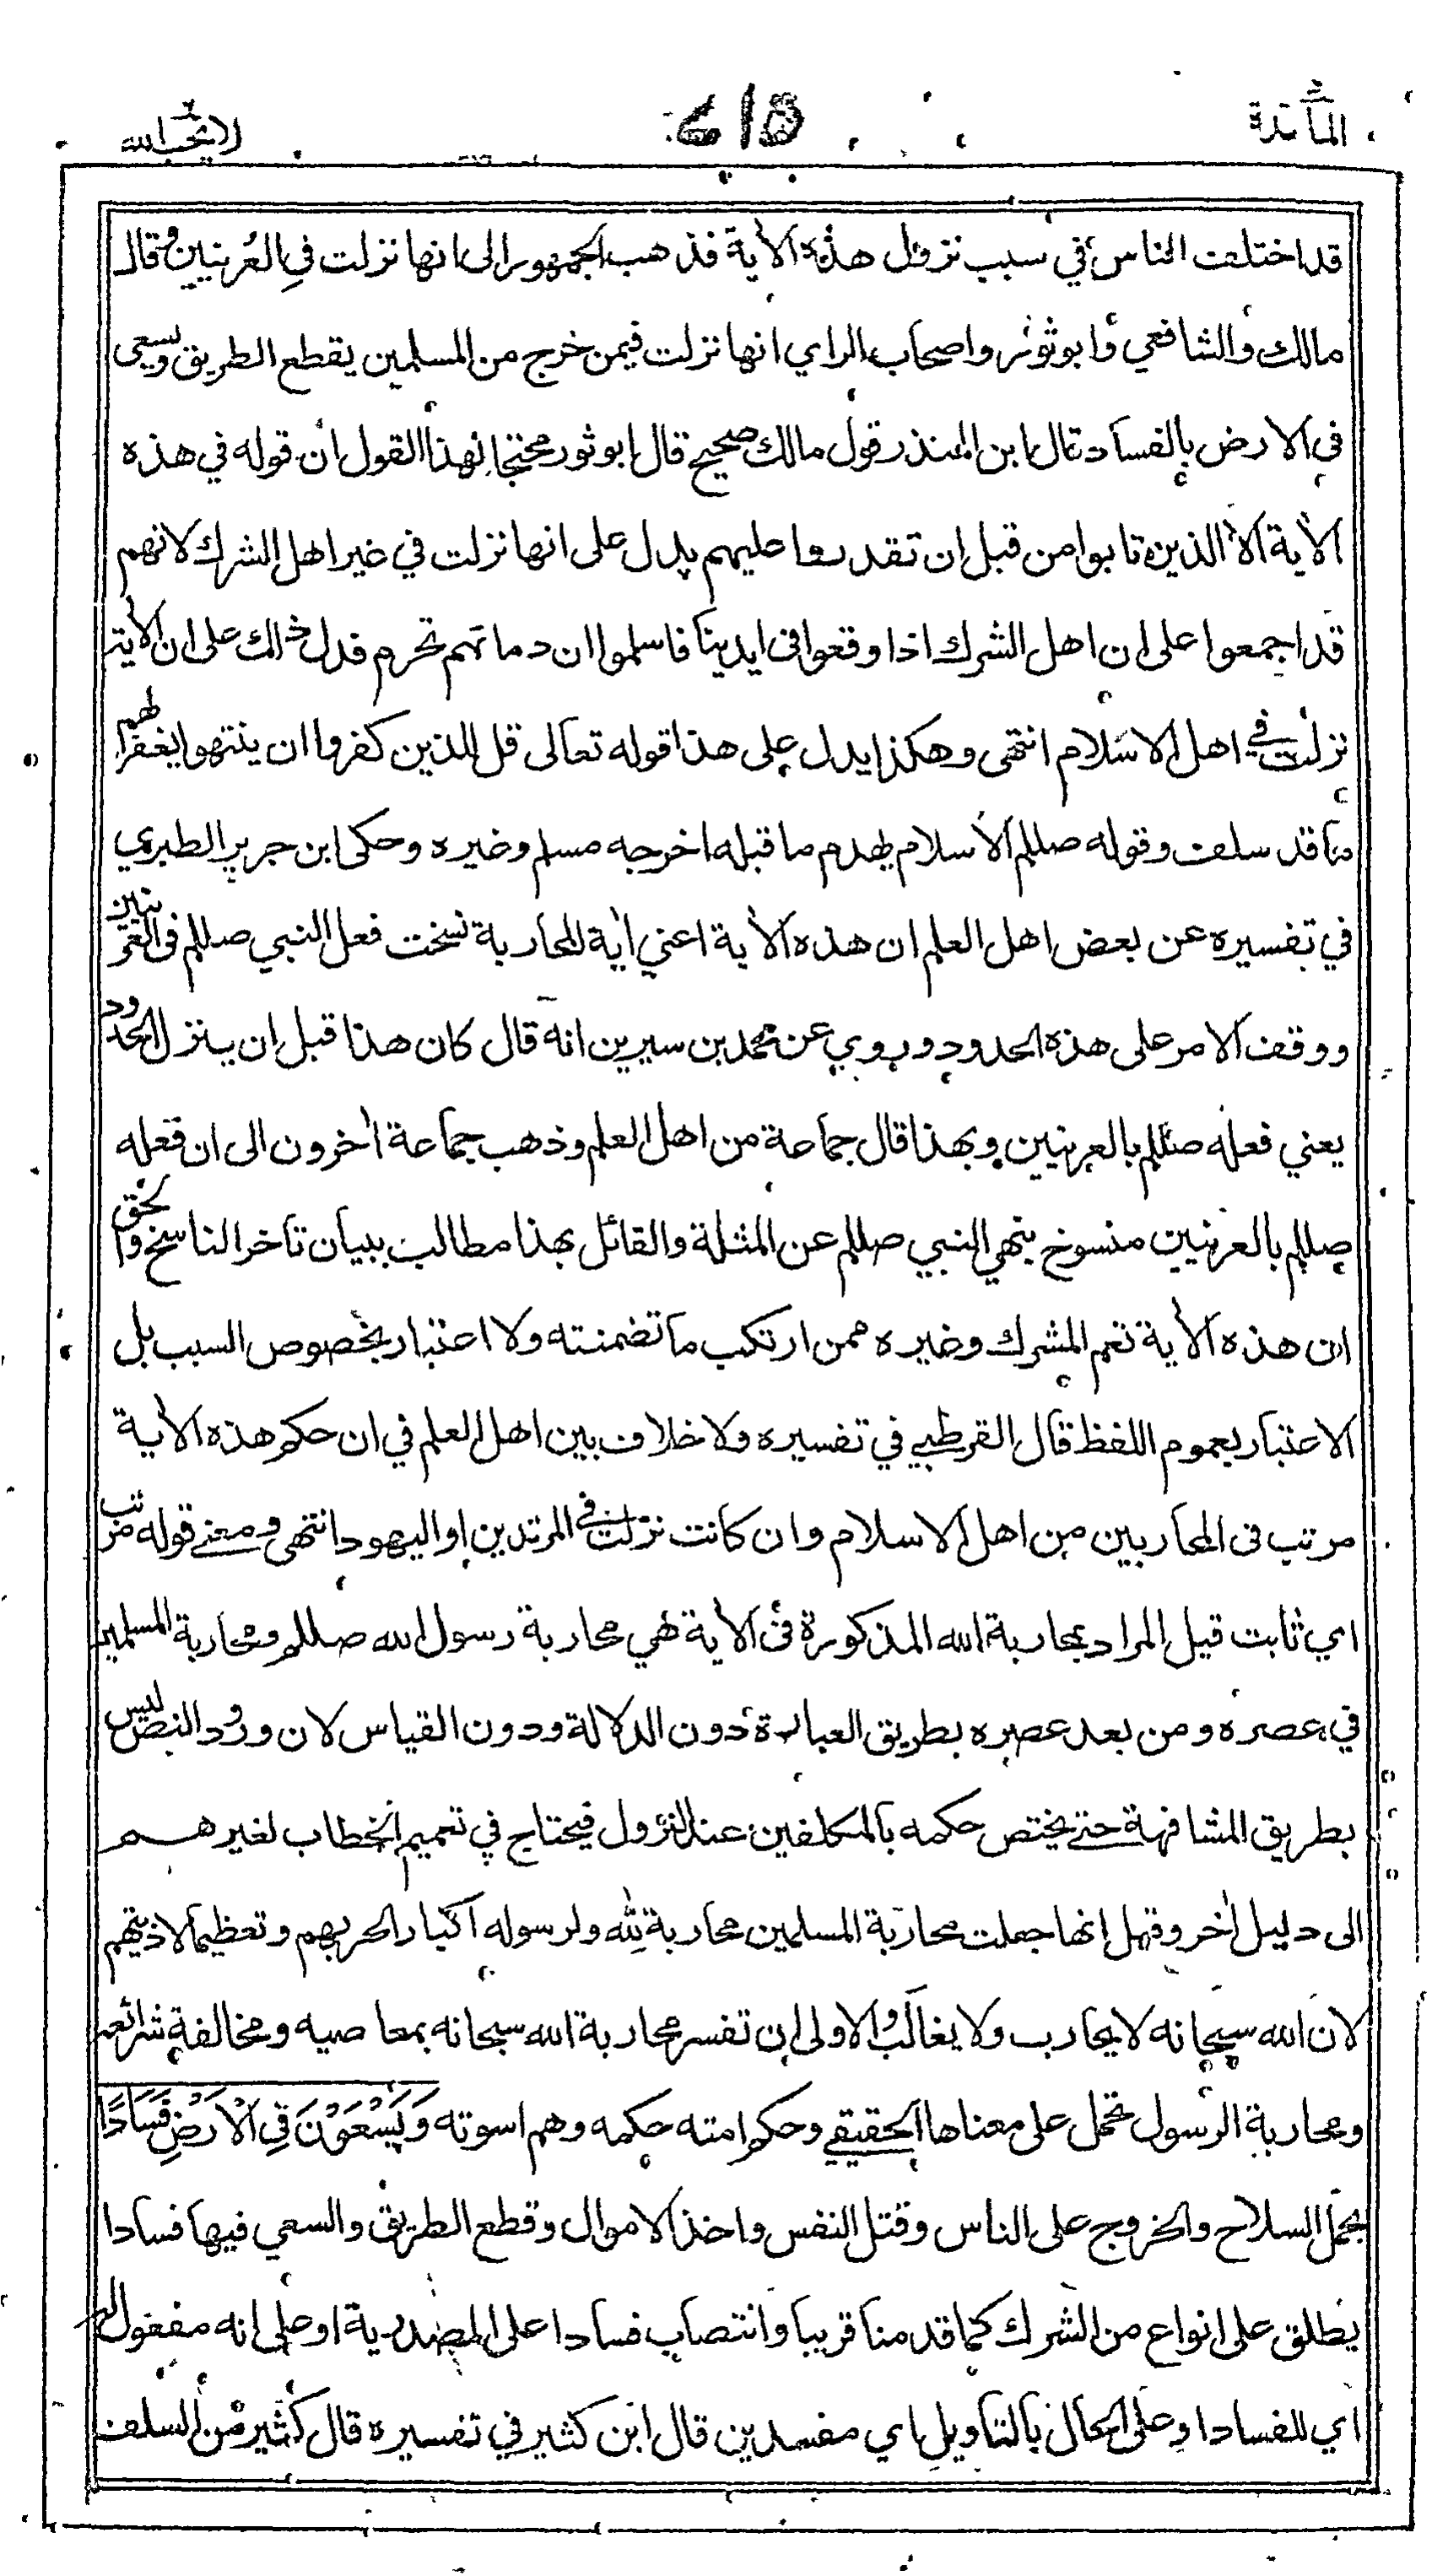 المآئدة
لا يحب الله
قد اختلف الناس في سبب نزول هذه الأية فذهب الجمهور الى انها نزلت في العُرنيين وقال
مالك والشافعي وابو ثور واصحاب الراي انها نزلت فيمن خرج من المسلمين يقطع الطريق ويسعى
فى الارض بالفساد قال ابن المنذر قول مالك صحيح قال ابو ثور محتجا لهذا القول ان قوله في هذه
الأية الا الذين تابوا من قبل ان تقدروا عليهم يدل على انها نزلت في غير اهل الشرك لانهم
قد اجمعوا على ان اهل الشرك اذا وقعوا فى ايدينا فاسلموا ان دمائهم تحرم فدل ذلك على ان الأية
نزلت في اهل الاسلام انتهى وهكذا يدل على هذا قوله تعالى قل للذين كفروا ان ينتهوا يغفر لهم
ما قد سلف وقوله صللم الاسلام يهدم ما قبله اخرجه مسلم وغيره وحكى ابن جرير الطبري
في تفسيره عن بعض اهل العلم ان هذه الأية اعني أية المحاربة نسخت فعل النبي صللم فى العرنيين
ووقف الامر على هذه الحدود وروي عن محمد بن سيرين انه قال كان هذا قبل ان ينزل الحدود
يعني فعله صللم بالعرنيين وبهذا قال جماعة من اهل العلم وذهب جماعة أخرون الى ان فعله
صللم بالعرنيين منسوخ بنهي النبي صللم عن المثلة والقائل بهذا مطالب ببيان تاخر الناسخ والحق
ان هذه الأية تعم المشرك وغيره ممن ارتكب ما تضمنته ولا اعتبار بخصوص السبب بل
الاعتبار بعموم اللفظ قال القرطبي في تفسيره ولا خلاف بين اهل العلم في ان حكم هذه الأية
مرتب فى المحاربين من اهل الاسلام وان كانت نزلت في المرتدين او اليهود انتهى ومعنى قوله مرتب
اي ثابت قيل المراد بمحاربة الله المذكورة فى الأية هي محاربة رسول الله صللم ومحاربة المسلمين
في عصره ومن بعد عصره بطريق العبارة دون الدلالة ودون القياس لان ورود النص ليس
بطريق المشافهة حتى يختص حكمه بالمكلفين عند النزول فيحتاج في تعميم الخطاب لغيرهم
الى دليل أخر وقيل انها جعلت محاربة المسلمين محاربة لله ولرسوله اكبارا لحربهم وتعظيما لاذيتهم
لان الله سبحانه لا يحارب ولا يغالب والاولى ان تفسر محاربة الله سبحانه بمعاصيه ومخالفة شرائعه
ومحاربة الرسول تحمل على معناها الحقيقي وحكم امته حكمه وهم اسوته وَيَسْعَوْنَ فِي الْاَرْضِ فَسَادًا
بحمل السلاح والخروج على الناس وقتل النفس واخذ الاموال وقطع الطريق والسعي فيها فسادا
يطلق على انواع من الشرك كما قدمنا قريبا وانتصاب فسادا على المصدرية او على انه مفعول له
اي للفسادا وعلى الحال بالتاويل اي مفسدين قال ابن كثير في تفسيره قال كثير من السلف